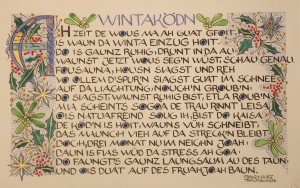 WINTAKÖDN
HZEIT DE WOUS MA AH GUAT GFOIT,
IS WAUN DA WINTA EINZUG HOIT.
DO IS GAUNZ RUHIG, DRUNT IN DA AU,
WAUNST JETZT WOUS SEGN WÜST, SCHAU GENAU.
FOUSAUNA, HOUSN SIAGST UND REH
DOLLE EAD SPUR'N SIAGST GUAT IM SCHNEE
AUF DA LIACHTUNG NOUCH'N GROUBIN
DO SIAGST, WAUNST RUHIG BIST, ETLA ROUBIN.
A SCHEINTS SOGOA DE TRAU RINNT LEISA,
DIS NATUAFREIND SOUS IH, BIST DO KAISA.
DE HODN IS HOIT, WAUNS VÜH SCHNEIBT,
DAS MAUNCH VIEH AUF DA STRECK'N BLEIBT.
DOCH, DREI MONAT NU IM NEICHN JOAH
DAUN IS FIAS WÜD DA STRESS AH GOA.
DO FAUNGT'S GAUNZ LAUNGSAUM AU DES TAUN
UND OIS DUAT AUF DES FRUAHJOAH BAUN.